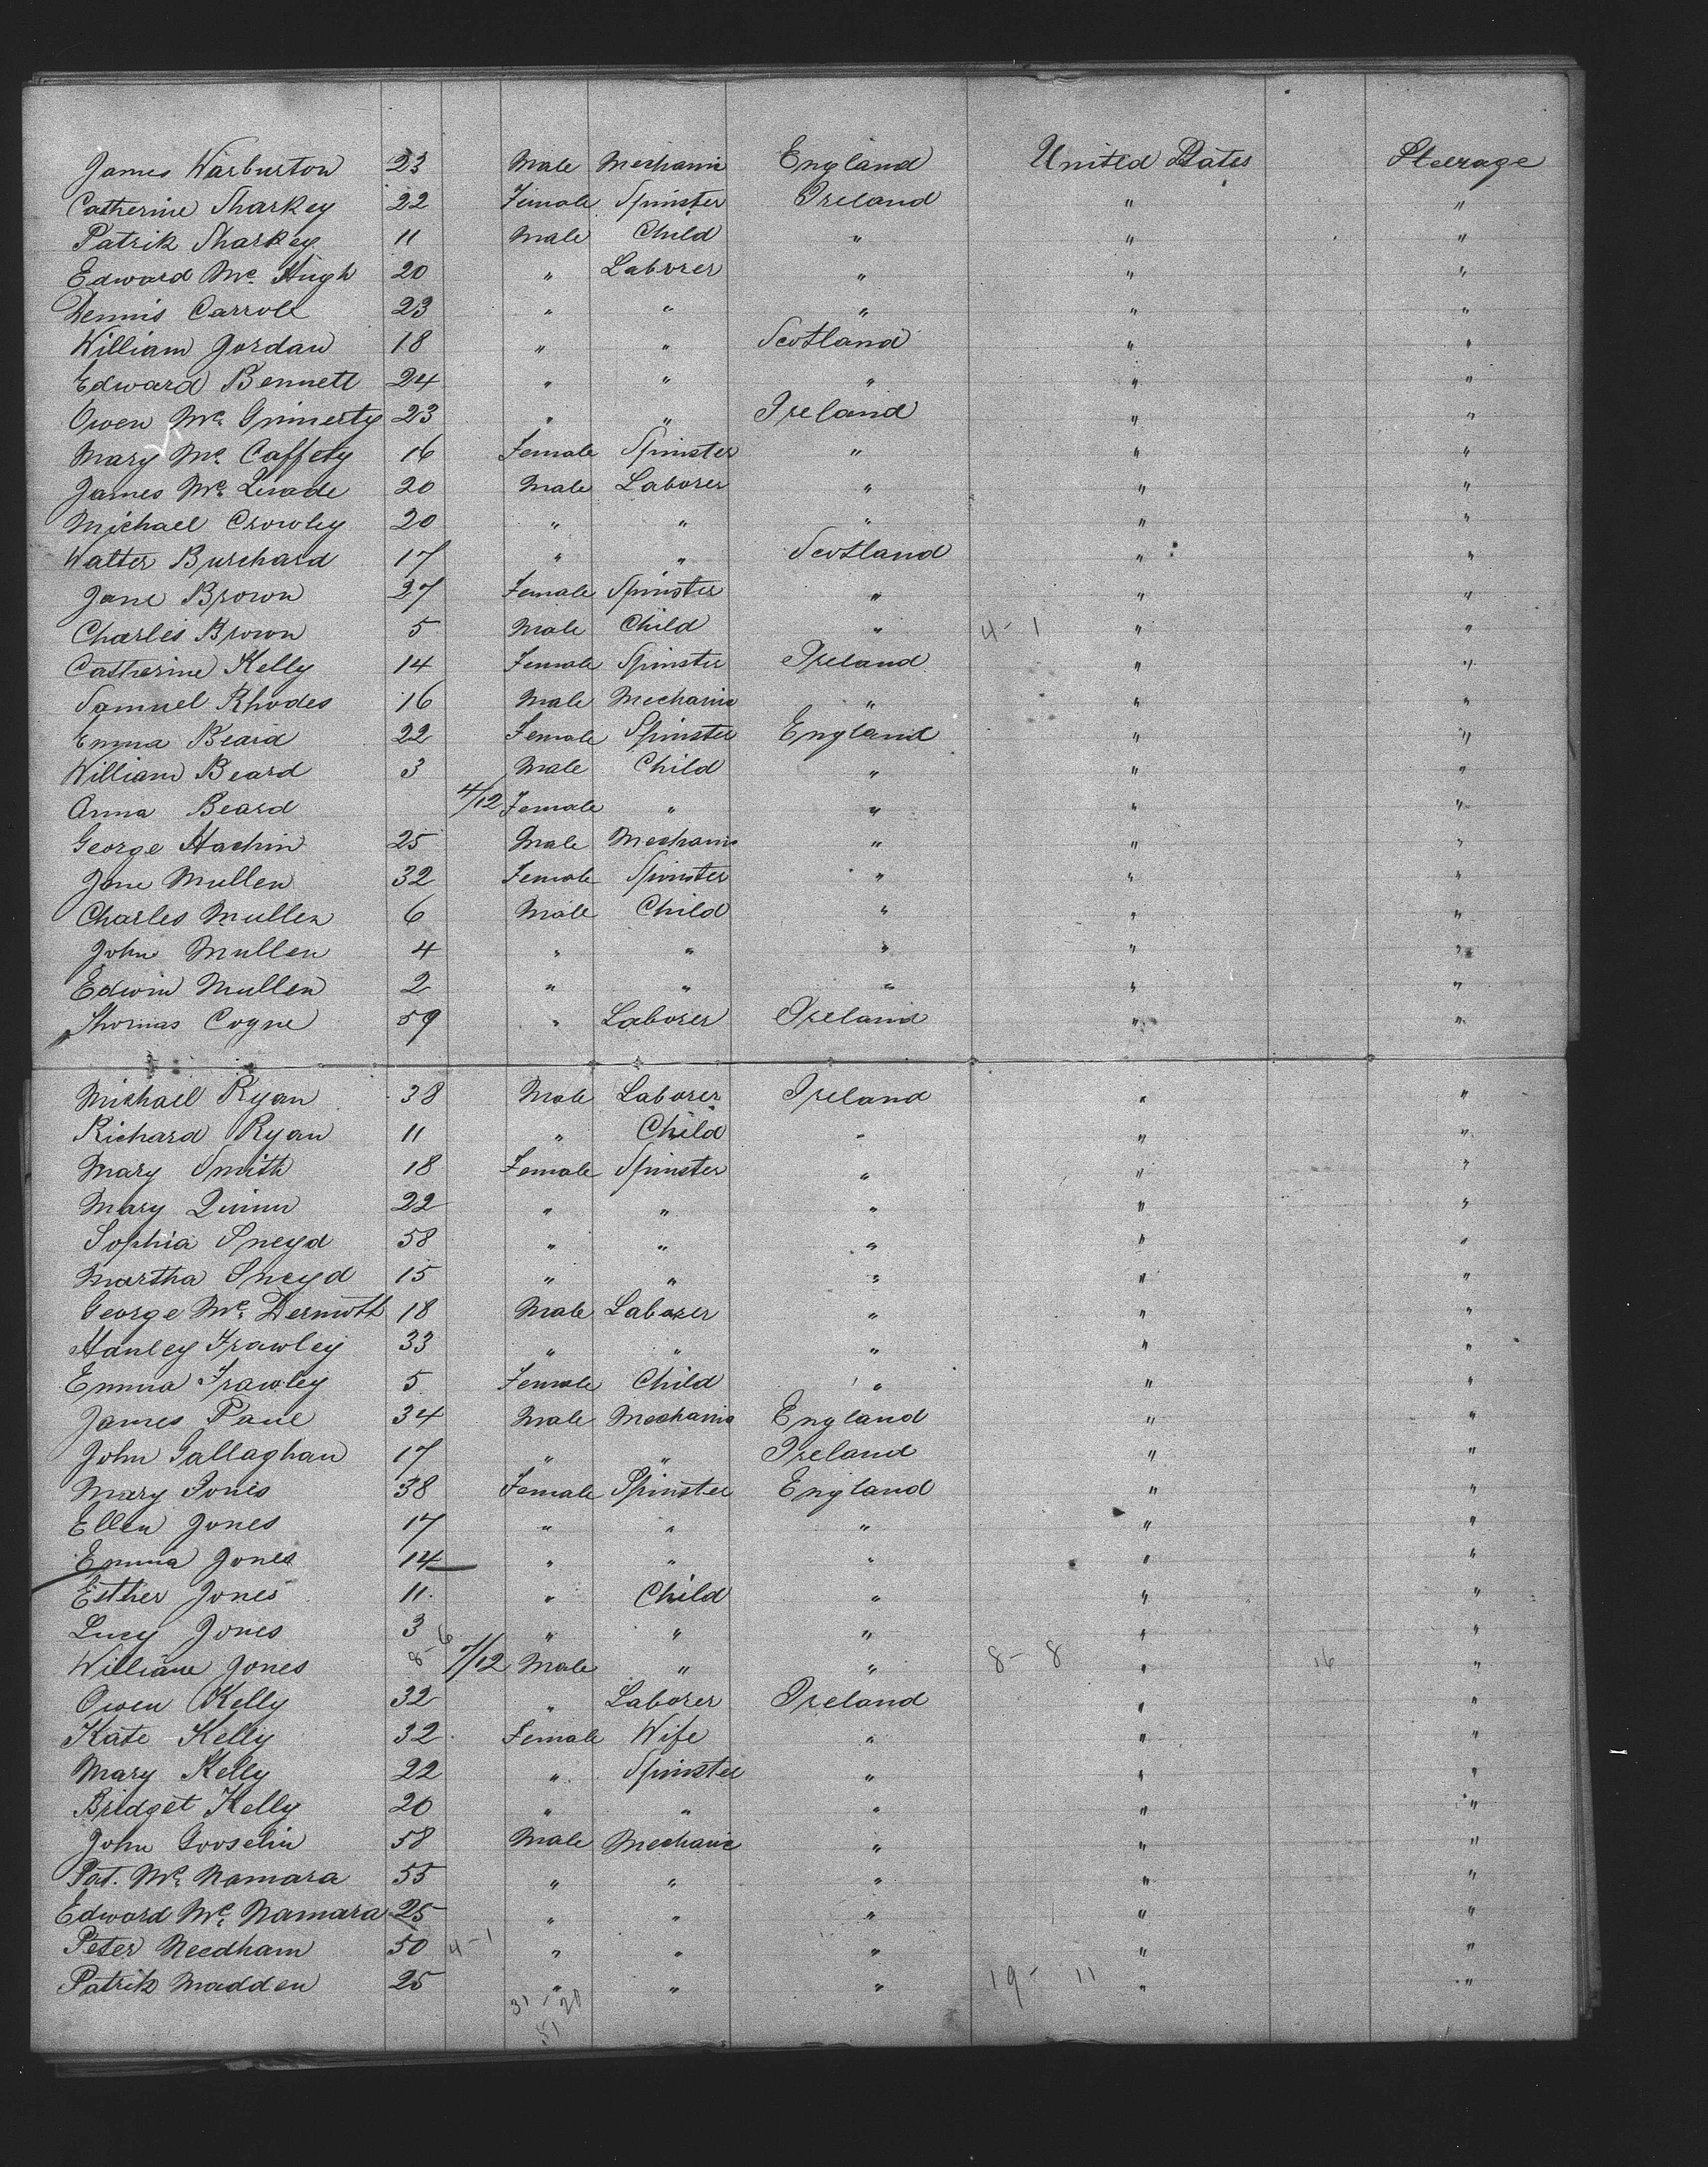 James Warburton 23 Male Mechanic England United States Steerage
Catherine Sharkey 22 Female Spinster Ireland " "
Patrik Sharkey 11 Male Child " " "
Edward Mc Hugh 20 " Laborer " " "
Dennis Carroll 23 " " " " "
William Jordan 18 " " Scotland " "
Edward Bennett 24 " " " " "
Owen Mc Ginnerty 23 " " Ireland " "
Mary Mc Caffety 16 Female Spinster " " "
James Mc Quade 20 Male Laborer " " "
Michael Crowley 20 " " " " "
Walter Burchard 17 " " Scotland " "
Jane Brown 27 Female Spinster " " "
Charles Brown 5 Male Child " 4-1 " "
Catherine Kelly 14 Female Spinster Ireland " "
Samuel Rhodes 16 Male Mechanic " " "
Emma Beard 22 Female Spinster England " "
William Beard 3 Male Child " " "
Anna Beard 4/12 Female " " " "
George Hachin 25 Male Mechanic " " "
Jane Mullen 32 Female Spinster " " "
Charles Mullen 6 Male Child " " "
John Mullen 4 " " " " "
Edwin Mullen 2 " " " " "
Thomas Cogne 59 " Laborer Ireland " "
Michael Ryan 38 Male Laborer Ireland " "
Richard Ryan 11 " Child " " "
Mary Smith 18 Female Spinster " " "
Mary Quinn 22 " " " " "
Sophia Sneyd 58 " " " " "
Martha Sneyd 15 " " " " "
George Mc Dermoth 18 Male Laborer " " "
Hanley Frawley 33 " " " " "
Emma Frawley 5 Female Child " " "
James Paul 34 Male Mechanic England " "
John Gallaghan 17 " " Ireland " "
Mary Jones 38 Female Spinster England " "
Ellen Jones 17 " " " " "
Emma Jones 14 " " " " "
Esther Jones 11 " Child " " "
Lucy Jones 3 " " " " "
William Jones 7/12 Male " " 8-8 " 16 "
Owen Kelly 32 " Laborer Ireland " "
Kate Kelly 32 Female Wife " " "
Mary Kelly 22 " Spinster " " "
Bridget Kelly 20 " " " " "
John Gooselin 58 Male Mechanic " " "
Pat. Mc Namara 55 " " " " "
Edward Mc Namara 25 " " " " "
Peter Needham 50 4-1 " " " " "
Patrik Madden 25 " " " 19-11 " "
31-20
51